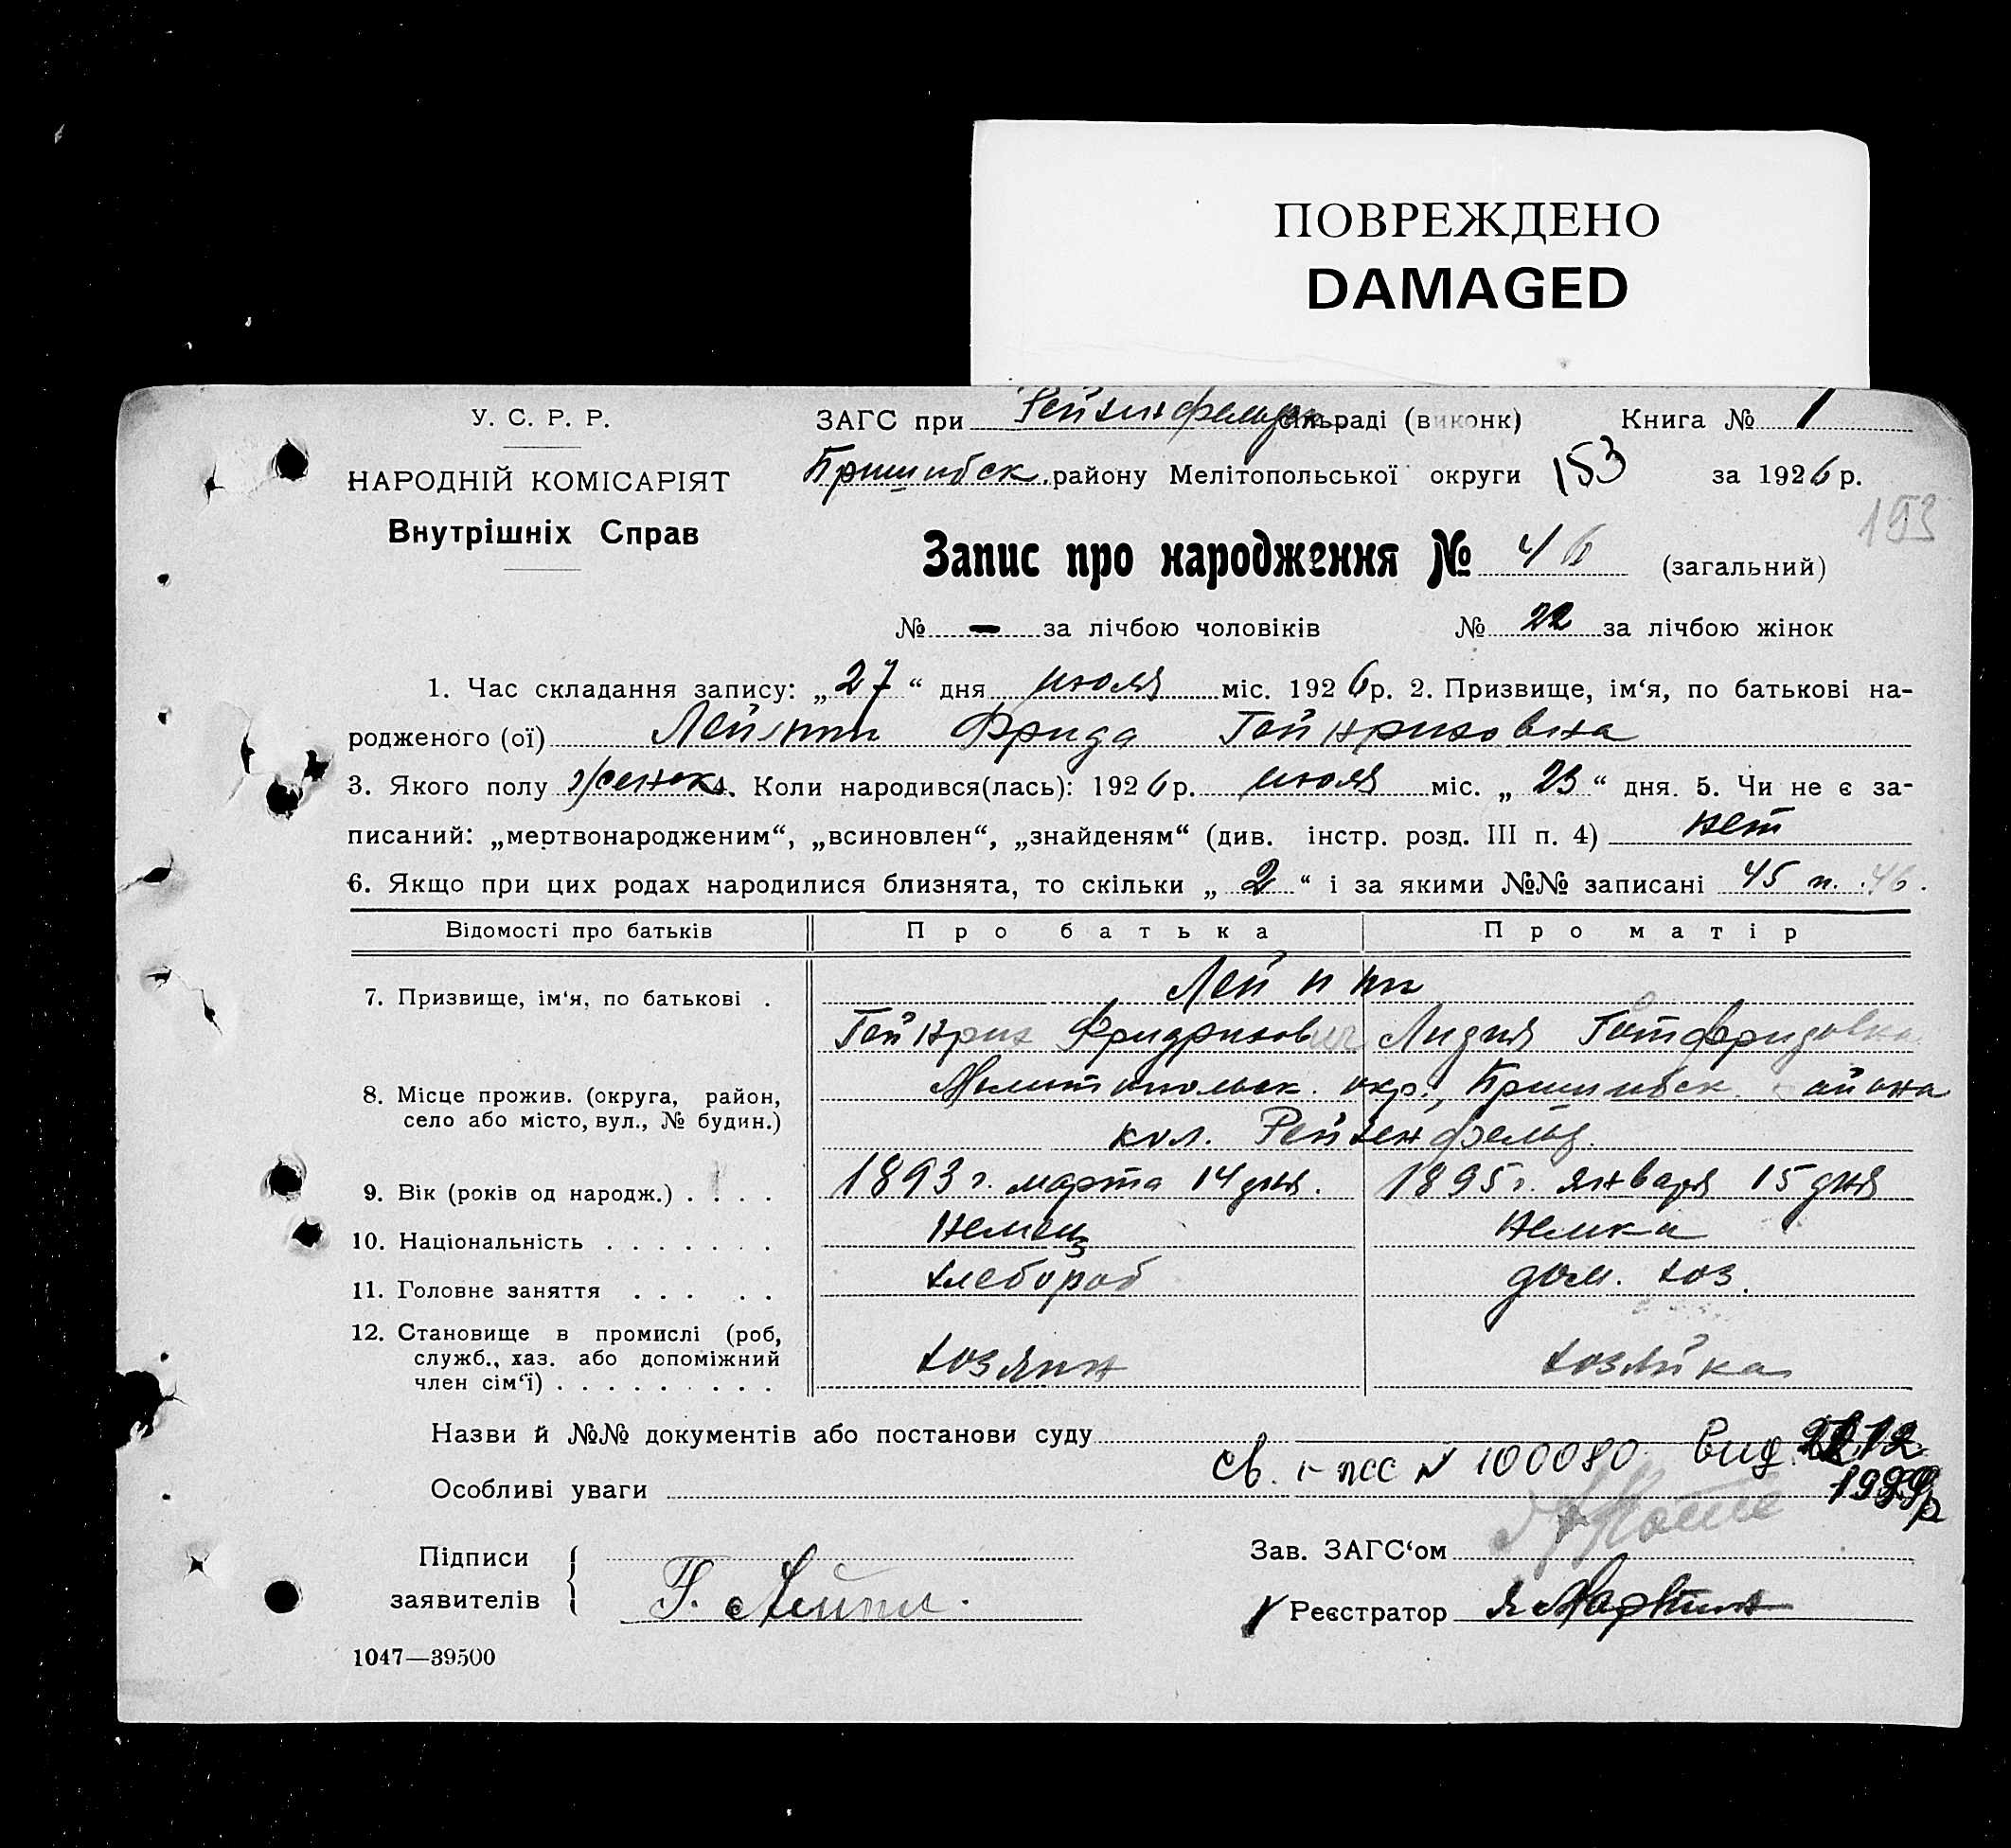 ПОВРЕЖДЕНО
DAMAGED
У. С. Р. Р.
ЗАГС при Рейхенфельдск. сільраді (виконк) Книга № 1
НАРОДНІЙ КОМІСАРІЯТ
Пришибск. району Мелітопольської округи 153 за 1926 р.
Внутрішніх Справ
193
Запис про народження № 46 (загальний)
№ — за лічбою чоловіків № 22 за лічбою жінок
1. Час складання запису: „27“ дня июля міс. 1926 р. 2. Призвище, ім‘я, по батькові на-
родженого (ої) Лейппи Фрида Гейнриховна
3. Якого полу женск. 4. Коли народився(лась): 1926 р. июля міс. „23“ дня. 5. Чи не є за-
писаний: „мертвонародженим“, „всиновлен“, „знайденям“ (див. інстр. розд. III п. 4) нет
6. Якщо при цих родах народилися близнята, то скільки „2“ і за якими №№ записані 45 и 46.
Відомості про батьків Про батька Про матір
7. Призвище, ім‘я, по батькові . Лейппи
Гейнрих Фридрихович Лидия Готфридовна
8. Місце прожив. (округа, район, село або місто, вул., № будин.) Мелитопольск. окр., Пришибск. района
кол. Рейхенфельд.
9. Вік (років од народж.) . . . . 1893 г. марта 14 дня. 1895 г. января 15 дня
10. Національність . . . . . . . немец немка
11. Головне заняття . . . . . хлебороб дом. хоз.
12. Становище в промислі (роб, служб., хаз. або допоміжний член сім‘ї) . . . . . . . . . хозяин хозяйка
Назви й №№ документів або постанови суду
св. № 100080 Вид. 12
Особливі уваги
Підписи
заявителів Г. Лейппи.
Зав. ЗАГС‘ом
Реєстратор Я Мартин
1047—39500